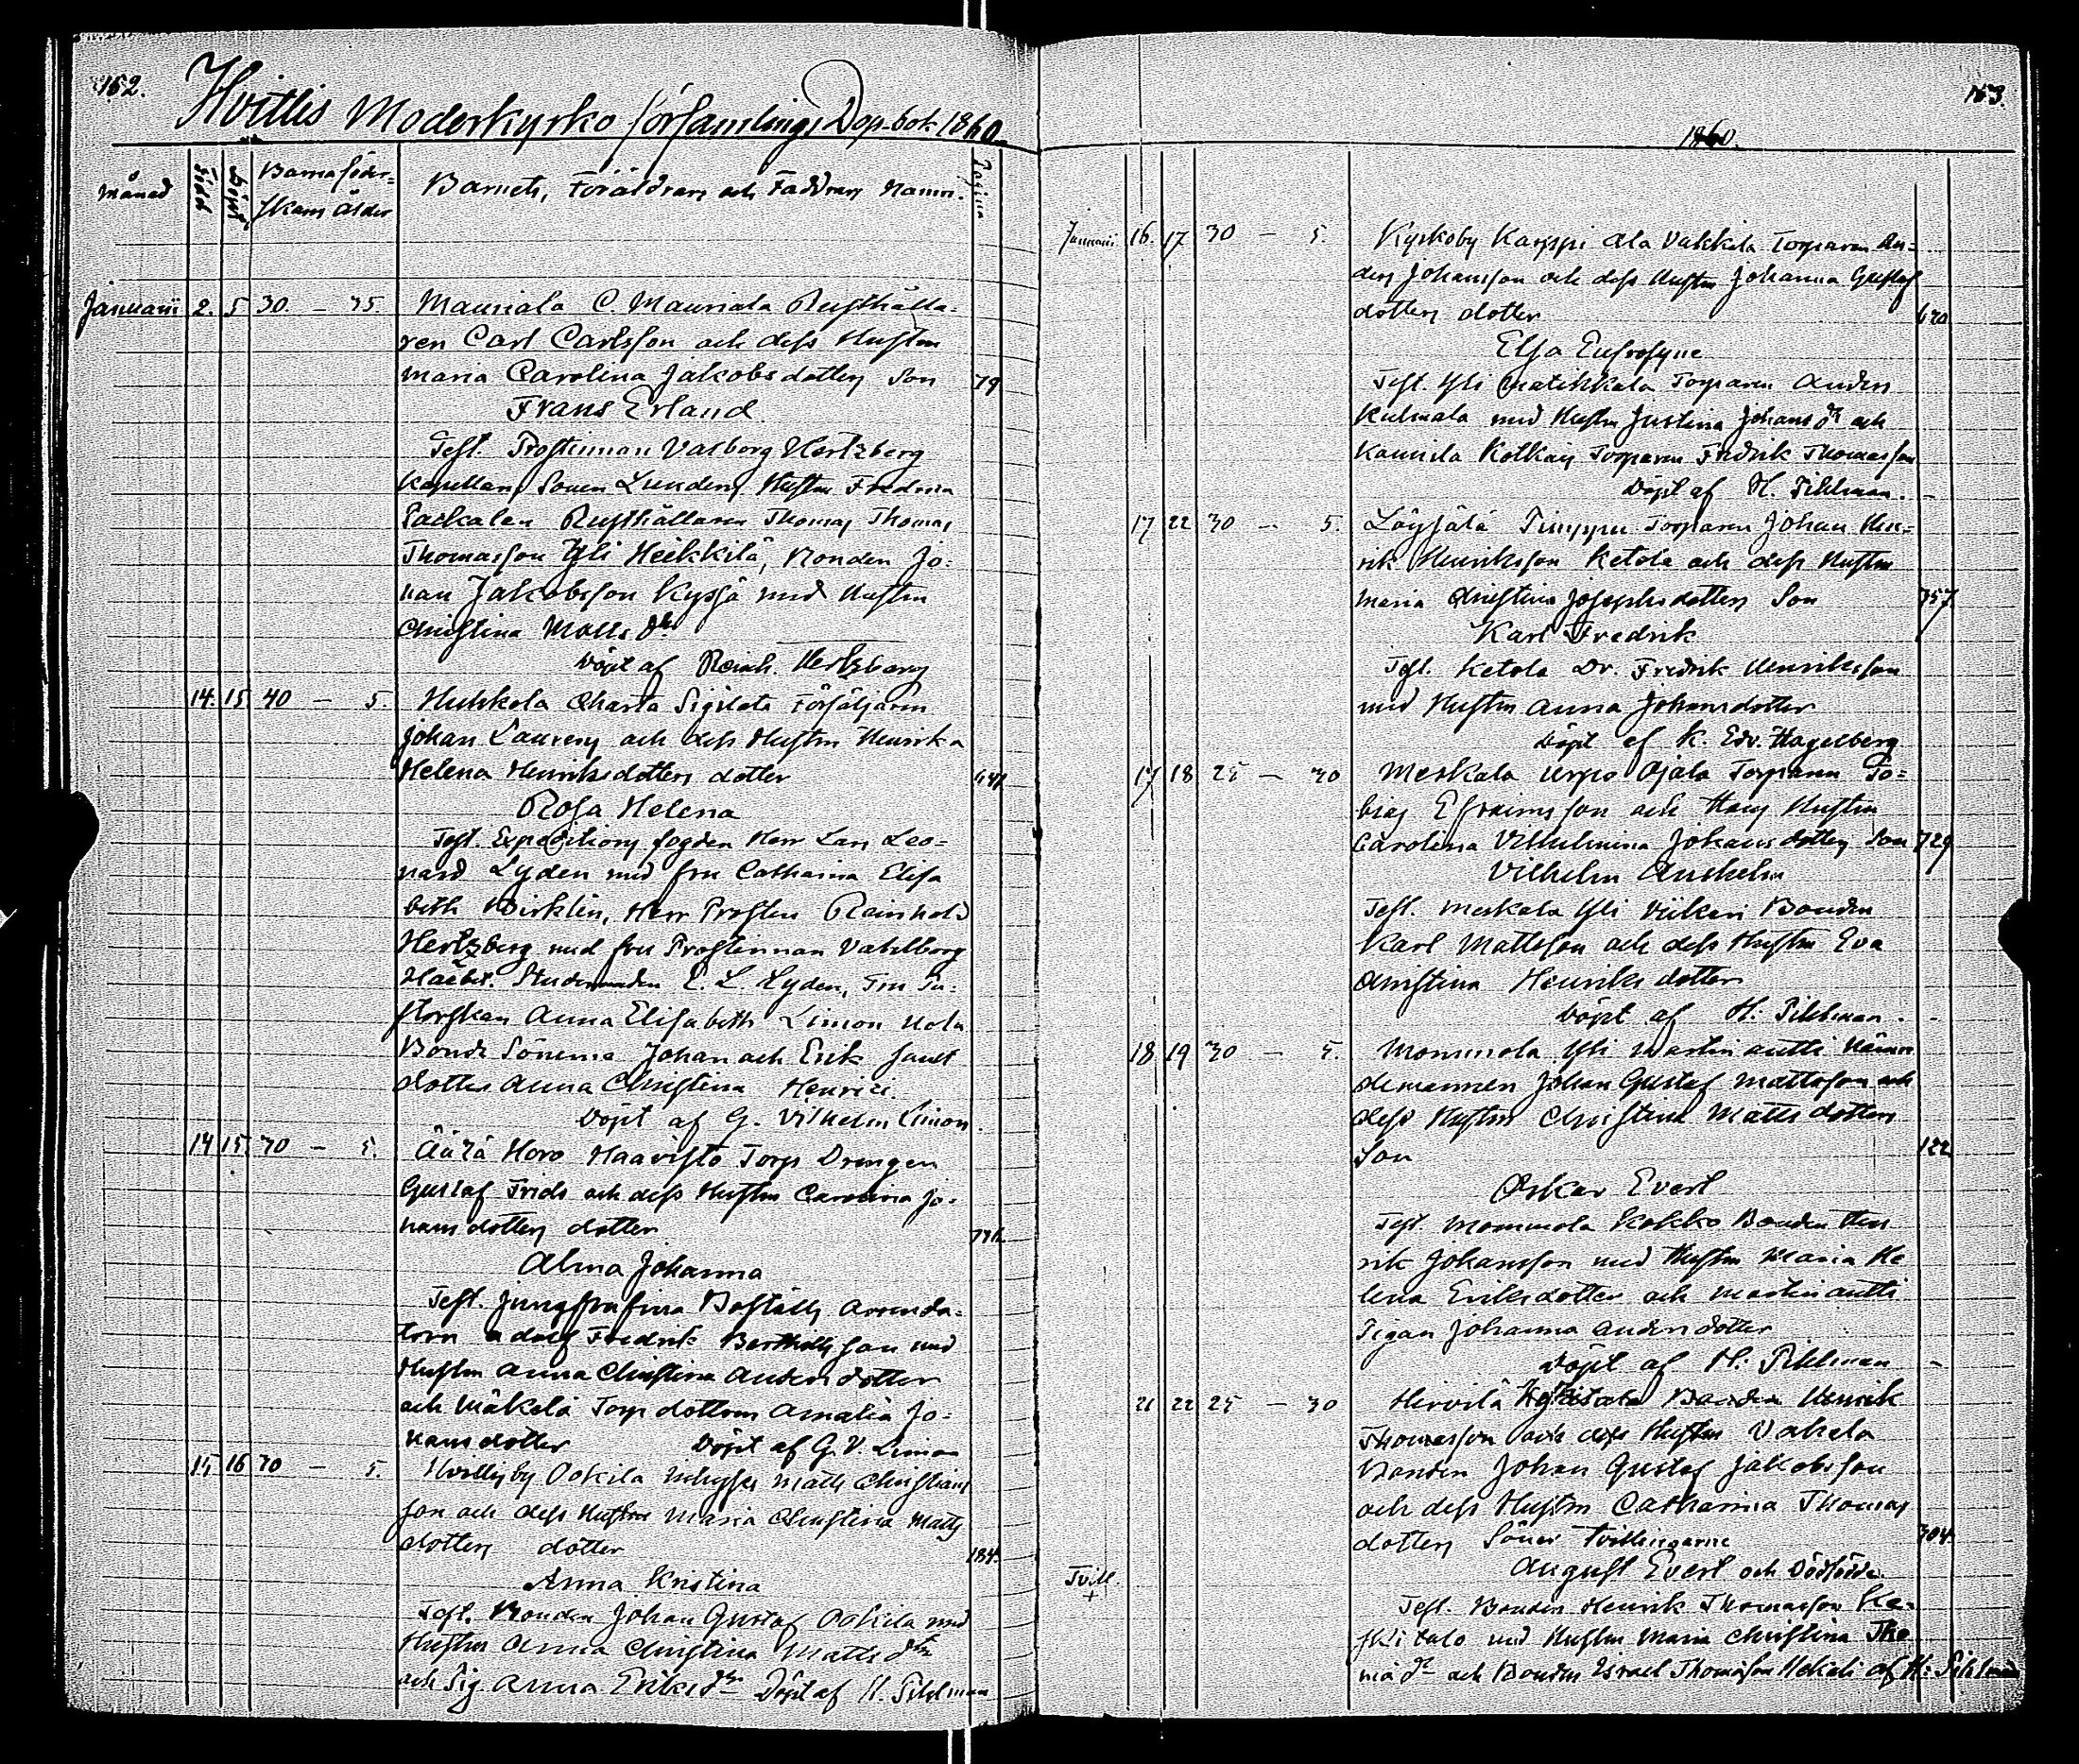 152.
Hvittis Moderkyrko församlings Dop-bok 1860.
månad Född Döpt Barnaföder=skans ålder Barnets, Föräldrars och Faddrars Namn. Pagina
Januarii 2. 5 30. — 35. Mauriala C. Mauriala Rusthålla=
ren Carl Carlsson och dess Hustru
Maria Carolina Jakobsdotters Son 79
Frans Erland
Test. Prostinnan Valborg Hertzberg
Kapellans Hustru Fredrica
Rusthållaren Thomas Thomas
Thomasson Yli Heikkilä, Bonden Jo=
han Jakobsson med Hustru
Christina Matts dr
Döpt af Reinh. Hertzberg
14. 15 40 — 5. Huhkola Charta Sigilata Försäljaren
Johan Laurens och dess Hustru Henrika
Helena Henriksdotters dotter
Rosa Helena
Test. Expeditions fogden Herr Lars Leo=
nard Lyden med fru Catharina Elisa
beth Herr Prosten Rainhold
Hertzberg med fru Prostinnan Vahlborg
Studeranden E. L. Lyden, Fru Pa=
storskan Anna Elisabeth Limon
Bonde Sönerna Johan och Erik samt
dotter Anna Christina Henrici.
Döpt af G. Vilhelm Limon.
14 15. 30 — 5. Äärä Horo Haavisto Torp Drengen
Gustaf Frids och dess Hustru Carolina Jo=
hans dotters dotter
Alma Johanna
Test. Boställs Arenda=
torn Adolf Fredrik Barthollsson med
Hustru Anna Christina Anders dotter
och Mäkelä Torp dottren Amalia Jo=
hansdotter Döpt af G. V. Limon
15 16 30 — 5. Ookila Inhyses Matts Christians
son och dess Hustru Maria Christina Matts
dotters dotter 184.
Anna Kristina
Test. Bonden Johan Gustaf Ookila med
Hustru Anna Christina Matts dtr
och Pig. Anna Eriks dr Döpt af H. Pihlman
153.
1860.
Januarii 16. 17 30 — 5. Kyrkoby Karppi Ala Vakkila Torparen An=
ders Johansson och dess Hustru Johanna Gustaf
dotters dotter 620
Elsa Eufrosyne
Test. Yli Torparen Anders
Kulmala med Hustru Justina Johans dr och
Torparen Fredrik Thomasson
Döpt af H. Pihlman. —
17 22 30 — 5. Torparen Johan Hen=
rik Henriksson Ketola och dess Hustru
Maria Christina Josephsdotters Son 357.
Karl Fredrik
Test. Ketola Dr. Fredrik Henriksson
med Hustru Anna Johansdotter
Döpt af K. Edv. Hagelberg
17 18 25 — 30 Meskala Urpo Ojala Torparen To=
bias Efraimsson och Hans Hustru
Carolina Vilhelmina Johans dotters Son 729
Vilhelm Anshelm
Test. Meskala Yli Viikari Bonden
Karl Mattsson och dess Hustru Eva
Christina Henriks dotter
Döpt af H: Pihlman. —
18 19 30 — 5. Mommola Yli Martinantti Nämn
demannen Johan Gustaf Mattsson och
dess Hustru Christina Matts dotters
Son 122
Oskar Evert
Test. Mommola Kokko Bonden Hen
rik Johansson med Hustru Maria He
lena Eriksdotter och Martinantti
Pigan Johanna Anders dotter
Döpt af H: Pihlman —
21 22 25 — 30 Hirvilä Bonden Henrik
Thomasson och dess Hustru
Bonden Johan Gustaf Jakobsson
och dess Hustru Catharina Thomas
dotters Söner Tvillingarne 304.
Tvill. + August Evert och Dödfödde
Test. Bonden Henrik Thomasson Ke=
skitalo med Hustru Maria Christina Tho
mæ dr och Bonden Israel Thomasson af H: Pihlman